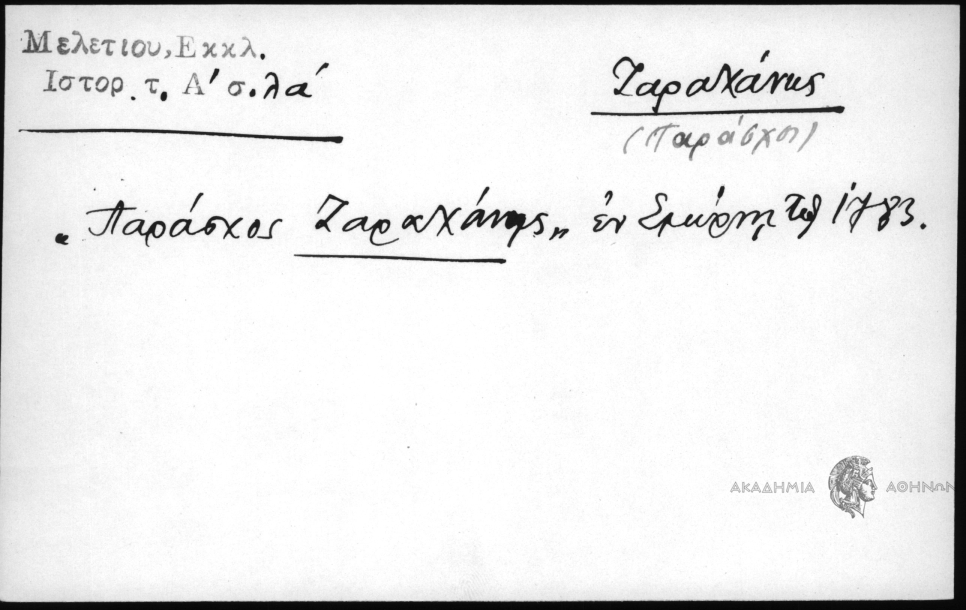 Μελετιου, Εκκλ.
Ιστορ. τ. Α' σ. λά
Ζαραχάνης
(Παράσχος)
„ Παράσχος Ζαραχάνης „ ἐν Σμύρνῃ τῷ 1783.
ΑΚΑΔΗΜΙΑ ΑΘΗΝΩΝ